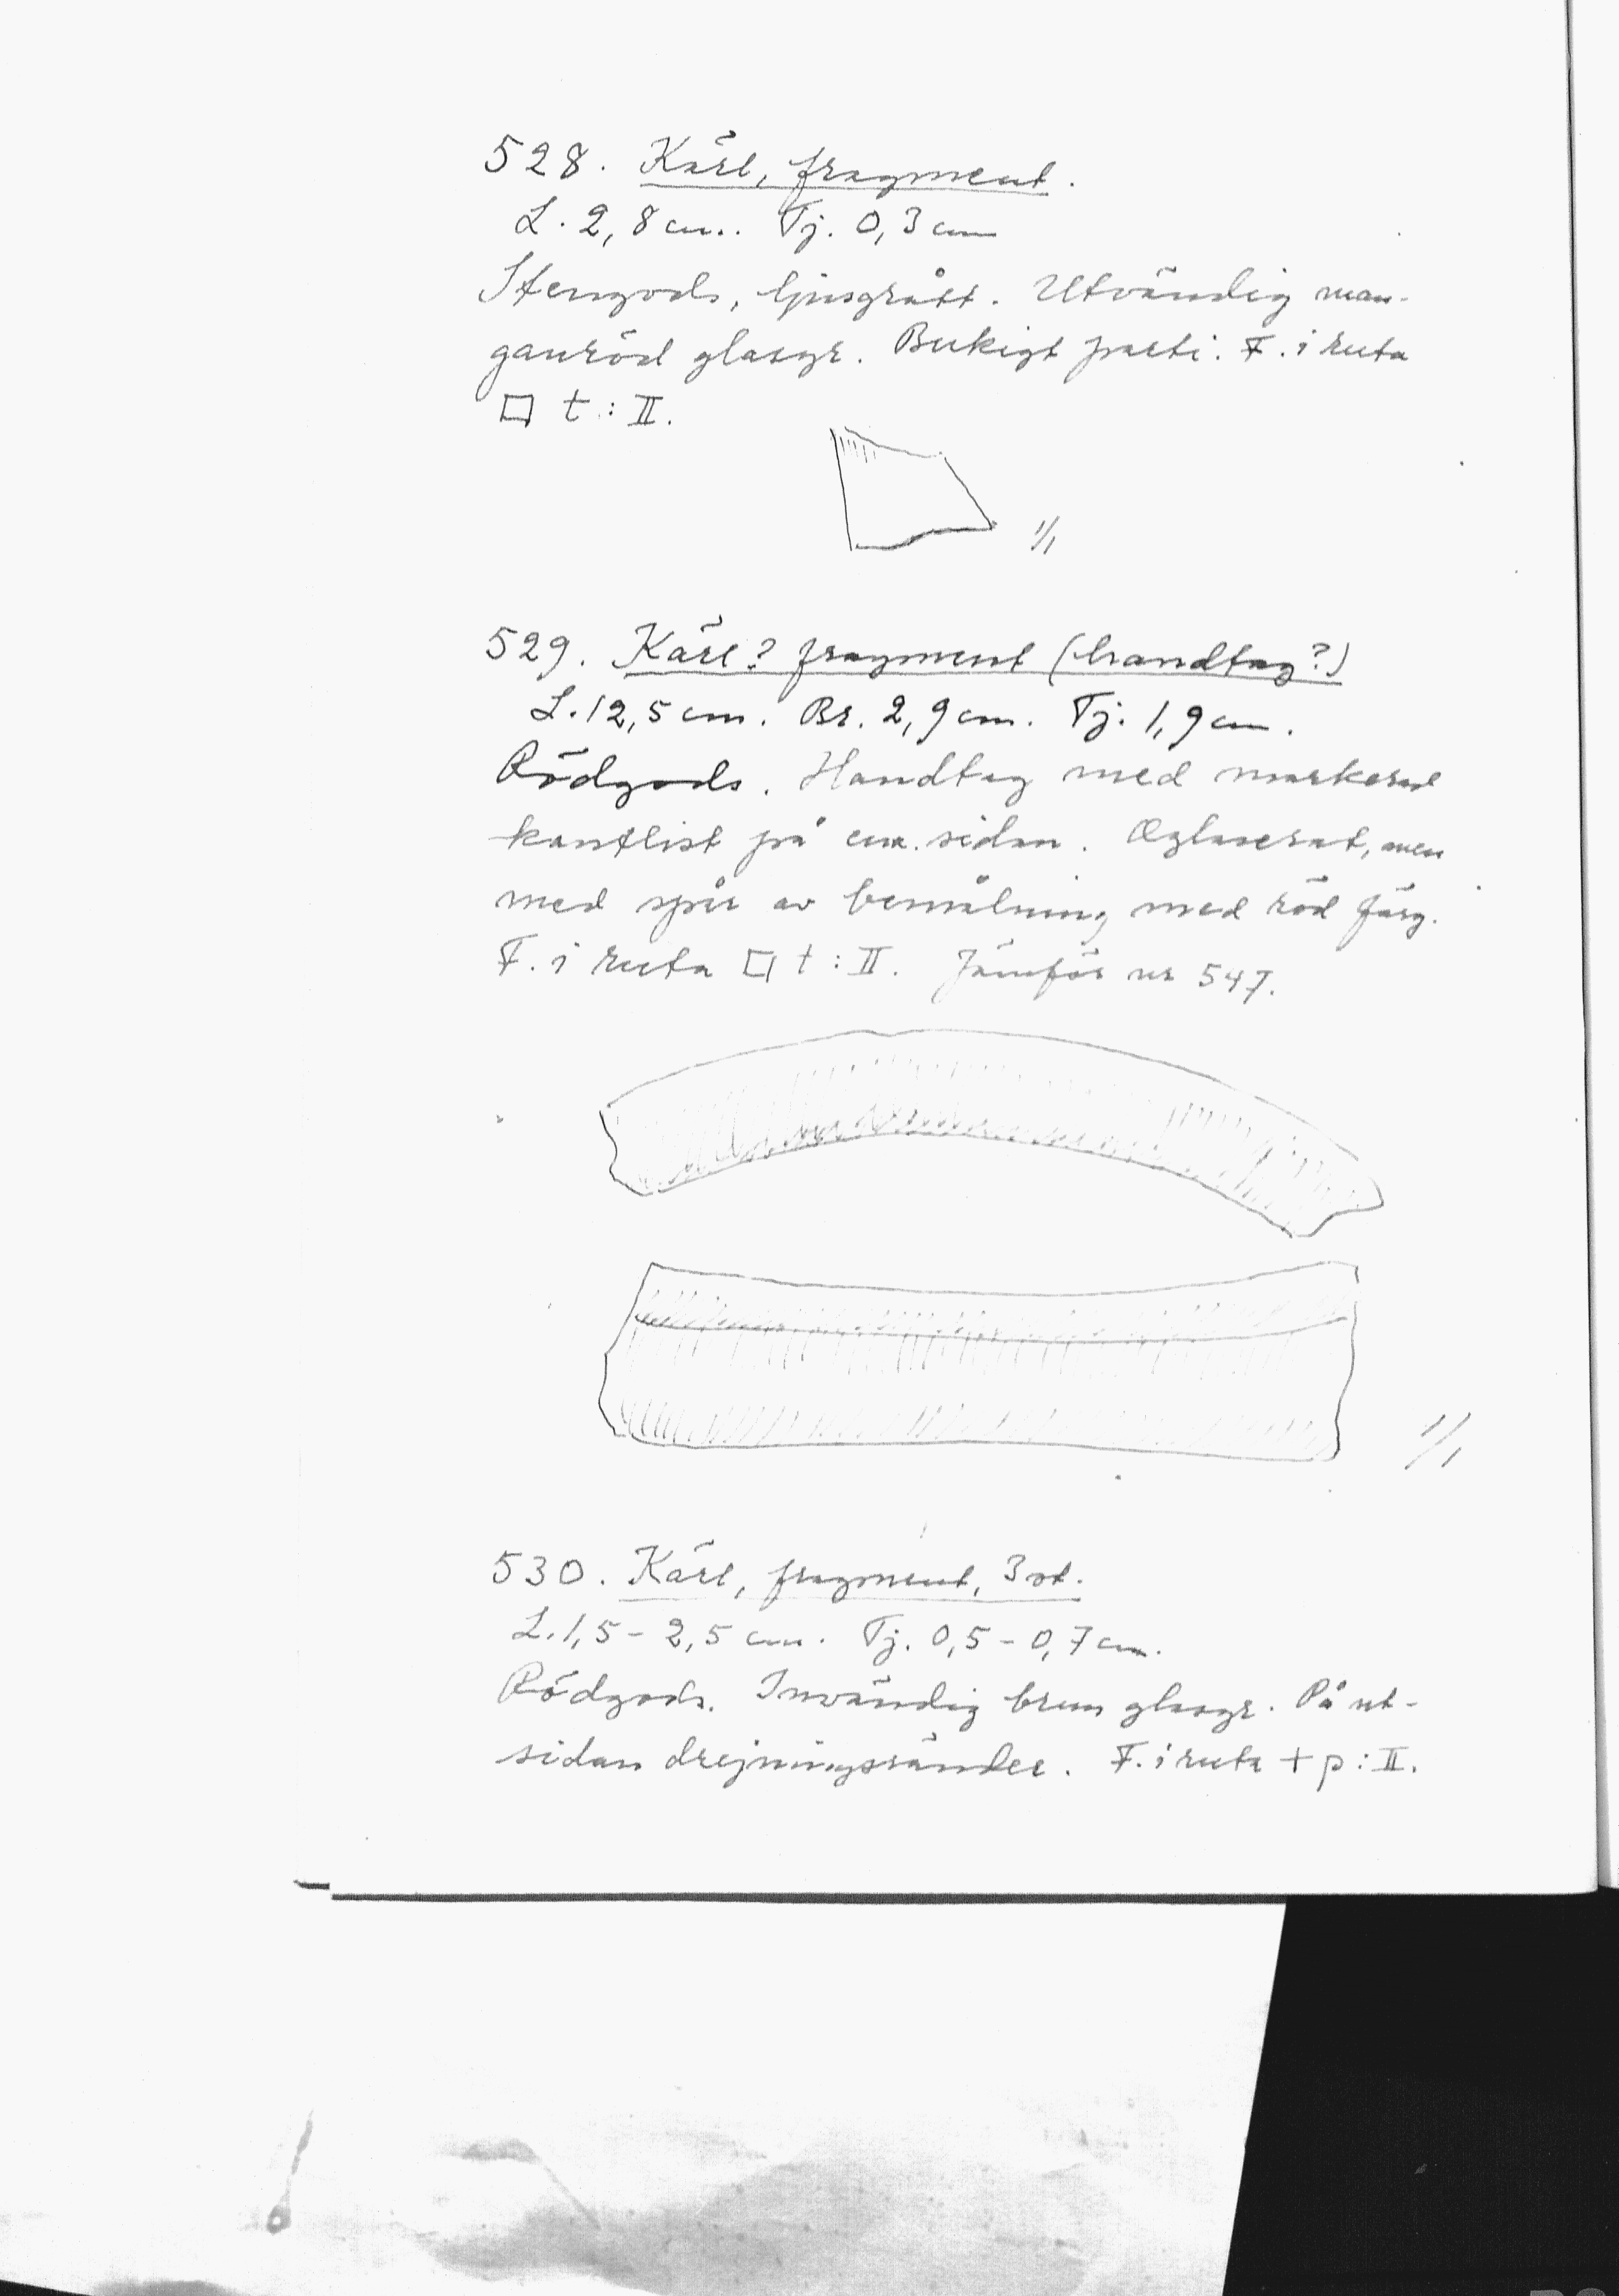 528. Kärl, fragment.
L. 2,8 cm. Tj. 0,3 cm
Stengods, ljusgrått. Utvändig man-
ganröd glasyr. Bukigt parti. F. i ruta
□ t : II.
1/1
529. Kärl? fragment (handtag?)
L. 12,5 cm. Br. 2,9 cm. Tj. 1,9 cm.
Rödgods. Handtag med markerad
kantlist på ena sidan. Oglaserat, men
med spår av bemålning med röd färg.
F. i ruta □ t : II. Jämför nr 547.
1/1
530. Kärl, fragment, 3 st.
L. 1,5 - 2,5 cm. Tj. 0,5 - 0,7 cm.
Rödgods. Invändig brun glasyr. På ut-
sidan drejningsränder. F. i ruta + p : II.